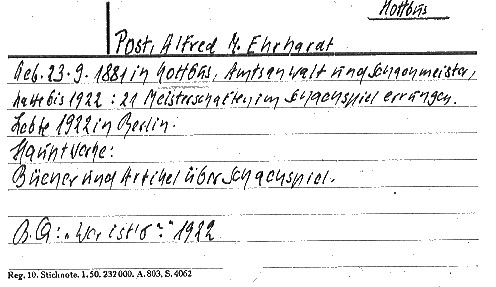 Kottbus
Post, Alfred M. Ehrhardt
Geb. 23. 9. 1881 in Kottbus, Amtsanwalt und Schachmeister,
hatte bis 1922 : 21 Meisterschaften im Schachspiel errungen.
Lebte 1922 in Berlin.
Hauptwerke:
Bücher und Artikel über Schachspiel.
B.Q: „Wer ist's?" 1922
Reg. 10. Stichnote. 1. 50. 232 000. A. 803, S. 4062